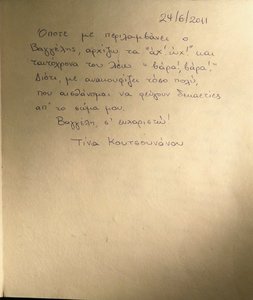 24/6/2011
Όποτε με περιλαμβάνει ο
Βαγγέλης, αρχίζω τα "άχ! ώχ!" και
ταυτόχρονα του λέω "βάρα!, βάρα!"
Διότι, με ανακουφίζει τόσο πολύ,
που αισθάνομαι να φεύγουν δεκαετίες
απ' το σώμα μου.
Βαγγέλη, σ' ευχαριστώ!
Τίνα Κουτσουνάνου